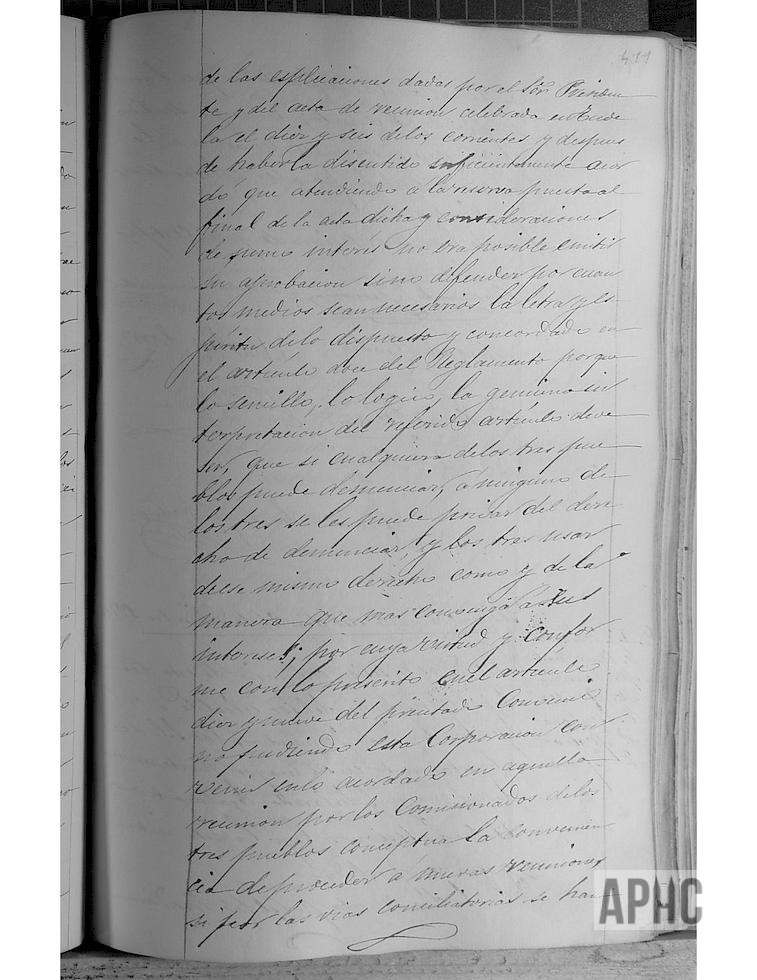 de las esplicaciones dadas por el Sor. Presiden
te y del acta de reunion celebrada en Tude
la el diez y seis de los corrientes y despues
de haberla discutido suficientemente acor
dó que atendiendo a la reserva puesta al
final de la acta dicha y consideraciones
de sumo interes no era posible emitir
su aprobacion sino defender por cuan
tos medios sean necesarios la letra y es
píritu de lo dispuesto y concordado en
el artículo doce del Reglamento porque
lo sencillo, lo logico, la genuina in
terpretacion del referido artículo deve
ser, que si cualquiera de los tres pue
blos puede denunciar, á ninguno de
los tres se les puede privar del dere
cho de denunciar, y los tres usar
de ese mismo derecho como y de la
manera que mas convenga á sus
intereses; por cuya virtud y confor
me con lo prescrito en el artículo
diez y nueve del precitado Convenio
no pudiendo esta Corporacion con
venir en lo acordado en aquella
reunion por los Comisionados de los
tres pueblos conceptua la convenien
cia de proceder a nuevas reuniones
si por las vias conciliatorias se han
APHC